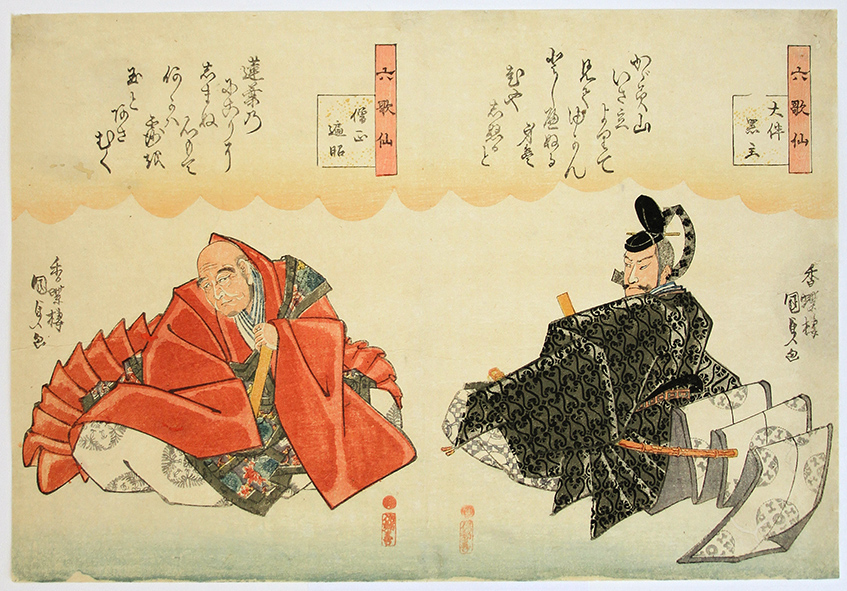 六歌仙
大伴
黒主
かゞみ山
いさ立よりて
見てゆかん
としへぬる
身は
老や
しぬると
香蝶楼
國貞画
六歌仙
僧正
遍昭
蓮葉乃
にこりに
しまぬ
心もて
何かは
露を
玉と
あさむく
香蝶楼
國貞画